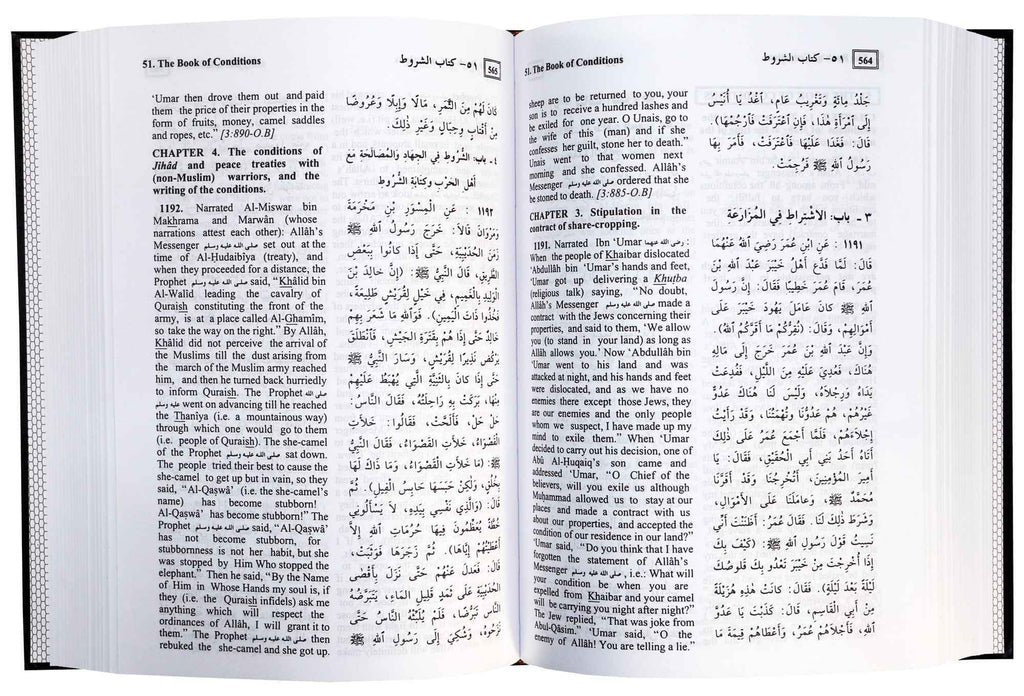 51. The Book of Conditions
٥١- كتاب الشروط
564
sheep are to be returned to you, your
son is to receive a hundred lashes and
be exiled for one year. O Unais, go to
the wife of this (man) and if she
confesses her guilt, stone her to death.”
Unais went to that women next
morning and she confessed. Allâh’s
Messenger صلى الله عليه وسلم ordered that she
be stoned to death. [3:885-O.B]
CHAPTER 3. Stipulation in the
contract of share-cropping.
1191. Narrated Ibn ‘Umar رضى الله عنهما :
When the people of Khaibar dislocated
‘Abdullâh bin ‘Umar’s hands and feet,
‘Umar got up delivering a Khutba
(religious talk) saying, “No doubt,
Allâh’s Messenger صلى الله عليه وسلم made a
contract with the Jews concerning their
properties, and said to them, ‘We allow
you (to stand in your land) as long as
Allâh allows you.’ Now ‘Abdullâh bin
‘Umar went to his land and was
attacked at night, and his hands and feet
were dislocated, and as we have no
enemies there except those Jews, they
are our enemies and the only people
whom we suspect, I have made up my
mind to exile them.” When ‘Umar
decided to carry out his decision, one of
Abû Al-Huqaiq’s son came and
addressed ‘Umar, “O Chief of the
believers, will you exile us although
Muhammad allowed us to stay at our
places and made a contract with us
about our properties, and accepted the
condition of our residence in our land?”
‘Umar said, “Do you think that I have
forgotten the statement of Allâh’s
Messenger صلى الله عليه وسلم , i.e.: What will
your condition be when you are
expelled from Khaibar and your camel
will be carrying you night after night?”
The Jew replied, “That was joke from
Abul-Qâsim.” ‘Umar said, “O the
enemy of Allâh! You are telling a lie.”
جَلْدُ مِائَةٍ وَتَغْرِيبُ عَامٍ، اغْدُ يَا أُنَيْسُ
إِلَى امْرَأَةِ هٰذَا، فَإِنِ اعْتَرَفَتْ فَارْجُمْهَا).
قَالَ: فَغَدَا عَلَيْهَا فَاعْتَرَفَتْ، فَأَمَرَ بِهَا
رَسُولُ اللهِ ﷺ فَرُجِمَتْ.
٣ - باب: الاشْتِراط في المُزَارَعَة
١١٩١ : عَنِ ابْنِ عُمَرَ رَضِيَ اللهُ عَنْهُمَا
قَالَ: لَمَّا فَدَعَ أَهْلُ خَيْبَرَ عَبْدَ اللهِ بْنَ
عُمَرَ، قَامَ عُمَرُ خَطِيبًا فَقَالَ: إِنَّ رَسُولَ
اللهِ ﷺ كانَ عامَلَ يَهُودَ خَيْبَرَ عَلَى
أَمْوَالِهِمْ، وَقَالَ: (نُقِرُّكُمْ ما أَقَرَّكُمُ اللهُ).
وَإِنَّ عَبْدَ اللهِ بْنَ عُمَرَ خَرَجَ إِلَى مَالِهِ
هُنَاكَ، فَعُدِيَ عَلَيْهِ مِنَ اللَّيْلِ، فَفُدِعَتْ
يَدَاهُ وَرِجْلَاهُ، وَلَيْسَ لَنَا هُنَاكَ عَدُوٌّ
غَيْرُهُمْ، هُمْ عَدُوُّنَا وَتُهْمَتُنَا، وَقَدْ رَأَيْتُ
إِجْلَاءَهُمْ، فَلَمَّا أَجْمَعَ عُمَرُ عَلَى ذٰلِكَ
أَتَاهُ أَحَدُ بَنِي أَبِي الْحُقَيْقِ، فَقَالَ: يَا
أَمِيرَ المُؤْمِنِينَ، أَتُخْرِجُنَا وَقَدْ أَقَرَّنَا
مُحَمَّدٌ ﷺ، وَعامَلَنَا عَلَى الأَمْوَالِ،
وَشَرَطَ ذٰلِكَ لَنَا. فَقَالَ عُمَرُ: أَظَنَنْتَ أَنِّي
نَسِيتُ قَوْلَ رَسُولِ اللهِ ﷺ: (كَيْفَ بِكَ
إِذَا أُخْرِجْتَ مِنْ خَيْبَرَ تَعْدُو بِكَ قَلُوصُكَ
لَيْلَةً بَعْدَ لَيْلَةٍ). فَقَالَ: كانَتْ هٰذِهِ هُزَيْلَةً
مِنْ أَبِي الْقَاسِمِ، قَالَ: كَذَبْتَ يَا عَدُوَّ
اللهِ، فَأَجْلَاهُمْ عُمَرُ، وَأَعْطَاهُمْ قِيمَةَ مَا
51. The Book of Conditions
٥١- كتاب الشروط
565
‘Umar then drove them out and paid
them the price of their properties in the
form of fruits, money, camel saddles
and ropes, etc.” [3:890-O.B]
CHAPTER 4. The conditions of
Jihâd and peace treaties with
(non-Muslim) warriors, and the
writing of the conditions.
1192. Narrated Al-Miswar bin
Makhrama and Marwân (whose
narrations attest each other): Allâh’s
Messenger صلى الله عليه وسلم set out at the
time of Al-Hudaibîya (treaty), and
when they proceeded for a distance, the
Prophet صلى الله عليه وسلم said, “Khâlid bin
Al-Walîd leading the cavalry of
Quraish constituting the front of the
army, is at a place called Al-Ghamîm,
so take the way on the right.” By Allâh,
Khâlid did not perceive the arrival of
the Muslims till the dust arising from
the march of the Muslim army reached
him, and then he turned back hurriedly
to inform Quraish. The Prophet صلى الله
عليه وسلم went on advancing till he reached
the Thanîya (i.e. a mountainous way)
through which one would go to them
(i.e. people of Quraish). The she-camel
of the Prophet صلى الله عليه وسلم sat down.
The people tried their best to cause the
she-camel to get up but in vain, so they
said, “Al-Qaswâ’ (i.e. the she-camel’s
name) has become stubborn!
Al-Qaswâ’ has become stubborn!” The
Prophet صلى الله عليه وسلم said, “Al-Qaswâ’
has not become stubborn, for
stubbornness is not her habit, but she
was stopped by Him Who stopped the
elephant.” Then he said, “By the Name
of Him in Whose Hands my soul is, if
they (i.e. the Quraish infidels) ask me
anything which will respect the
ordinances of Allâh, I will grant it to
them.” The Prophet صلى الله عليه وسلم then
rebuked the she-camel and she got up.
كانَ لَهُمْ مِنَ الثَّمَرِ، مَالًا وَإِبِلًا وَعُرُوضًا
مِنْ أَقْتَابٍ وَحِبَالٍ وَغَيْرِ ذٰلِكَ.
٤ـ باب: الشُّرُوط في الجِهَادِ وَالمُصَالَحَةِ مَعَ
أهْلِ الحَرْب وَكِتَابَةِ الشُّرُوط
١١٩٢ : عَنِ الْمِسْوَرِ بْنِ مَخْرَمَةَ
وَمَرْوَانَ قَالَا: خَرَجَ رَسُولُ اللهِ ﷺ
زَمَنَ الحُدَيْبِيَةِ، حَتَّى إِذَا كانُوا بِبَعْضِ
الطَّرِيقِ، قَالَ النَّبِيُّ ﷺ: (إِنَّ خالِدَ بْنَ
الْوَلِيدِ بِالْغَمِيمِ، في خَيْلٍ لِقُرَيْشٍ طَلِيعَةً،
فَخُذُوا ذَاتَ الْيَمِينِ). فَوَاللهِ ما شَعَرَ بِهِمْ
خالِدٌ حَتَّى إِذَا هُمْ بِقَتَرَةِ الجَيْشِ، فَانْطَلَقَ
يَرْكُضُ نَذِيرًا لِقُرَيْشٍ، وَسَارَ النَّبِيُّ ﷺ
حَتَّى إِذَا كانَ بِالثَّنِيَّةِ الَّتِي يُهْبَطُ عَلَيْهِمْ
مِنْهَا، بَرَكَتْ بِهِ رَاحِلَتُهُ، فَقَالَ النَّاسُ:
حَلْ حَلْ، فَأَلَحَّتْ، فَقَالُوا: خَلَأَتِ
الْقَصْوَاءُ، خَلَأَتِ الْقَصْوَاءُ، فَقَالَ النَّبِيُّ
ﷺ: (مَا خَلَأَتِ الْقَصْوَاءُ، وَمَا ذَاكَ لَهَا
بِخُلُقٍ، وَلٰكِنْ حَبَسَهَا حابِسُ الْفِيلِ). ثُمَّ
قَالَ: (وَالَّذِي نَفْسِي بِيَدِهِ، لَا يَسْأَلُونِي
خُطَّةً يُعَظِّمُونَ فِيهَا حُرُمَاتِ اللهِ إِلَّا
أَعْطَيْتُهُمْ إِيَّاهَا). ثُمَّ زَجَرَهَا فَوَثَبَتْ،
قَالَ: فَعَدَلَ عَنْهُمْ حَتَّى نَزَلَ بِأَقْصَى
الحُدَيْبِيَةِ عَلَى ثَمَدٍ قَلِيلِ المَاءِ، يَتَبَرَّضُهُ
النَّاسُ تَبَرُّضًا، فَلَمْ يُلَبِّثْهُ النَّاسُ حَتَّى
نَزَحُوهُ، وَشُكِيَ إِلَى رَسُولِ اللهِ ﷺ